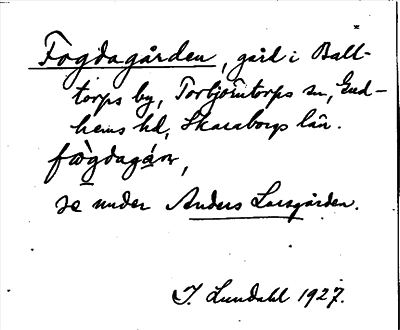 Fogdagården, gård i Ball-
torps by, Torbjörntorps sn, Gud-
hems hd, Skaraborgs län.
fògdagán,
se under Anders Larsgården.
I. Lundahl 1927.